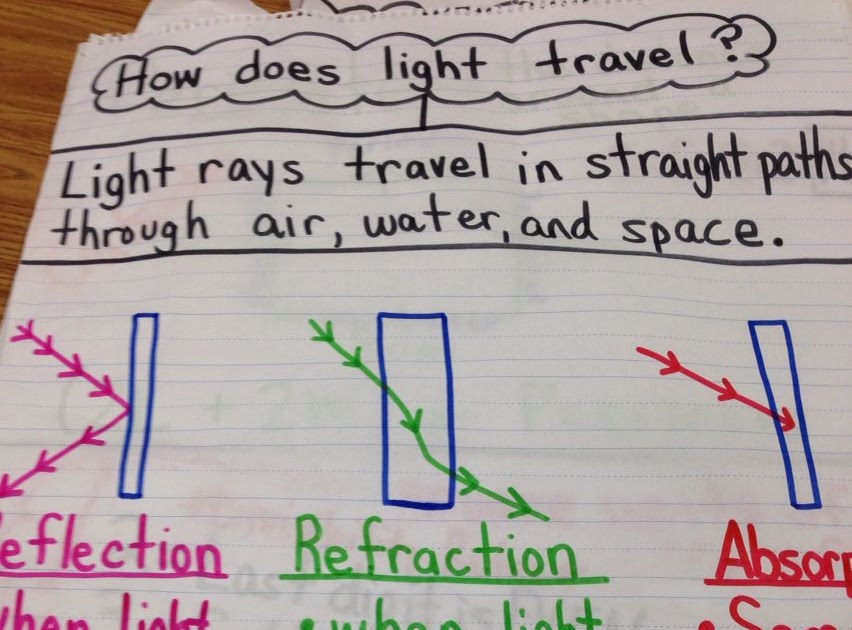 How does light travel?
Light rays travel in straight paths
through air, water, and space.
eflection Refraction Absorp
when light • when light • Som